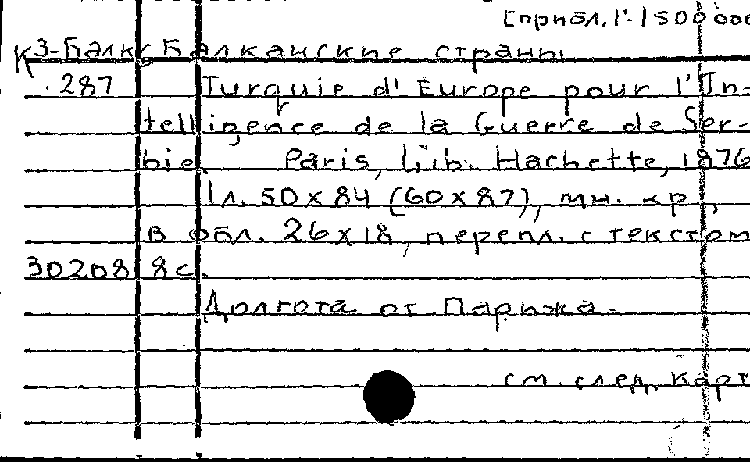 [прибл. 1:1500 000
К3-Балк Балканские страны
287 Turquie d'Europe pour l'In-
telligence de la Guerre de Ser-
bie. Paris, Lib. Hachette, 1876
1 л. 50x84 (60x87), мн. кр.,
в обл. 26x18, перепл. с текстом
302088 8с.
Долгота от Парижа.
см. след. карт